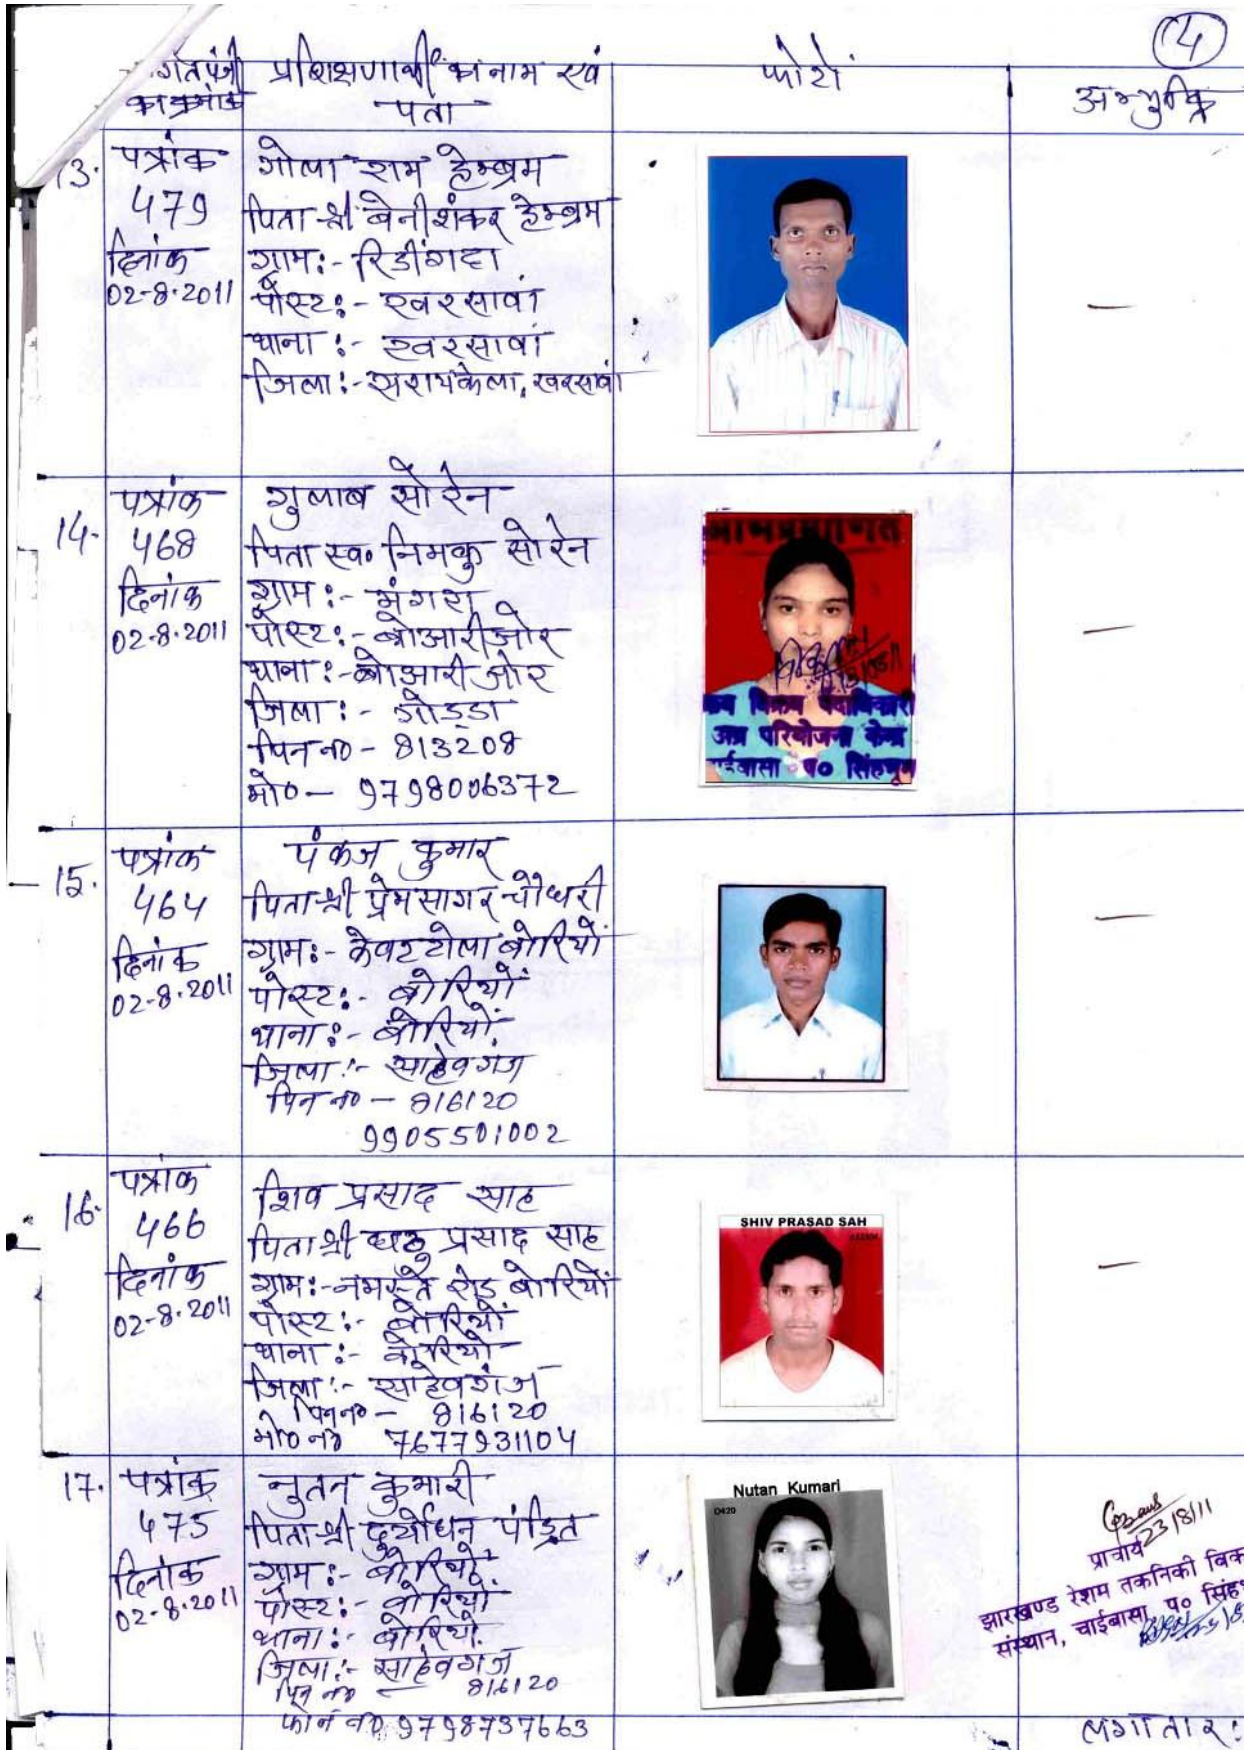 4
प्रशिक्षणार्थी का नाम एवं पता
फोटो
अभ्युक्ति
13. पत्रांक 479 दिनांक 02-8-2011
गोला राम हेम्ब्रम
पिता श्री बेनीशंकर हेम्ब्रम
ग्राम :- रिडींगदा
पोस्ट :- खरसावां
थाना :- खरसावां
जिला :- सरायकेला, खरसावां
—
14. पत्रांक 468 दिनांक 02-8-2011
गुलाब सोरेन
पिता स्व० निमकु सोरेन
ग्राम :- मंगरा
पोस्ट :- बोआरीजोर
थाना :- बोआरीजोर
जिला :- गोड्डा
पिन न० - 813208
मो० - 9798006372
अभिप्रमाणित
क्रय विक्रय पदाधिकारी
अग्र परियोजना केन्द्र
चाईबासा प० सिंहभूम
—
15. पत्रांक 464 दिनांक 02-8-2011
पंकज कुमार
पिता श्री प्रेमसागर चौधरी
ग्राम :- केवटटोला बोरियों
पोस्ट :- बोरियों
थाना :- बोरियों
जिला :- साहेवगंज
पिन न० - 816120
9905501002
—
16. पत्रांक 466 दिनांक 02-8-2011
शिव प्रसाद साह
पिता श्री प्रसाद साह
ग्राम :- नमस्ते रोड बोरियों
पोस्ट :- बोरियों
थाना :- बोरियों
जिला :- साहेवगंज
पिन न० - 816120
मो० न० 7677931104
SHIV PRASAD SAH
—
17. पत्रांक 475 दिनांक 02-8-2011
नुतन कुमारी
पिता श्री दुर्योधन पंडित
ग्राम :- बोरियों
पोस्ट :- बोरियों
थाना :- बोरियों
जिला :- साहेवगंज
पिन न० - 816120
फोन न० 9798737663
Nutan Kumari
0420
23/8/11
प्राचार्य
झारखण्ड रेशम तकनिकी विक
संस्थान, चाईबासा, प० सिंह
लगातार :